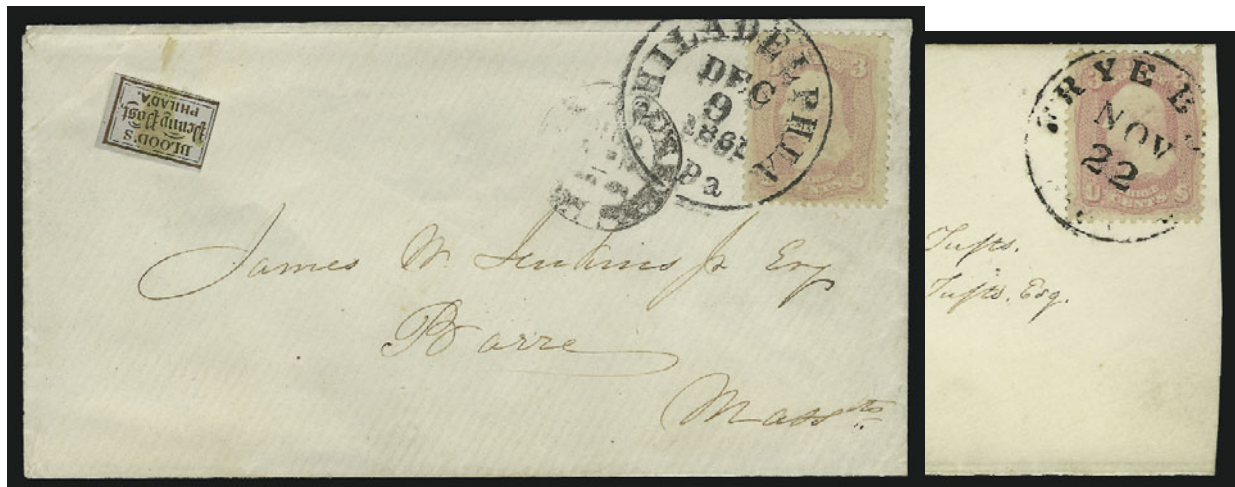 BLOOD'S
Penny Post,
PHILADA.
PHILADELPHIA
DEC
9
1861
Pa
3
James W. Jenkins Jr Esq
Barre
Massts
RYEB
NOV
22
U THREE S
CENTS
Tufts.
Tufts. Esq.